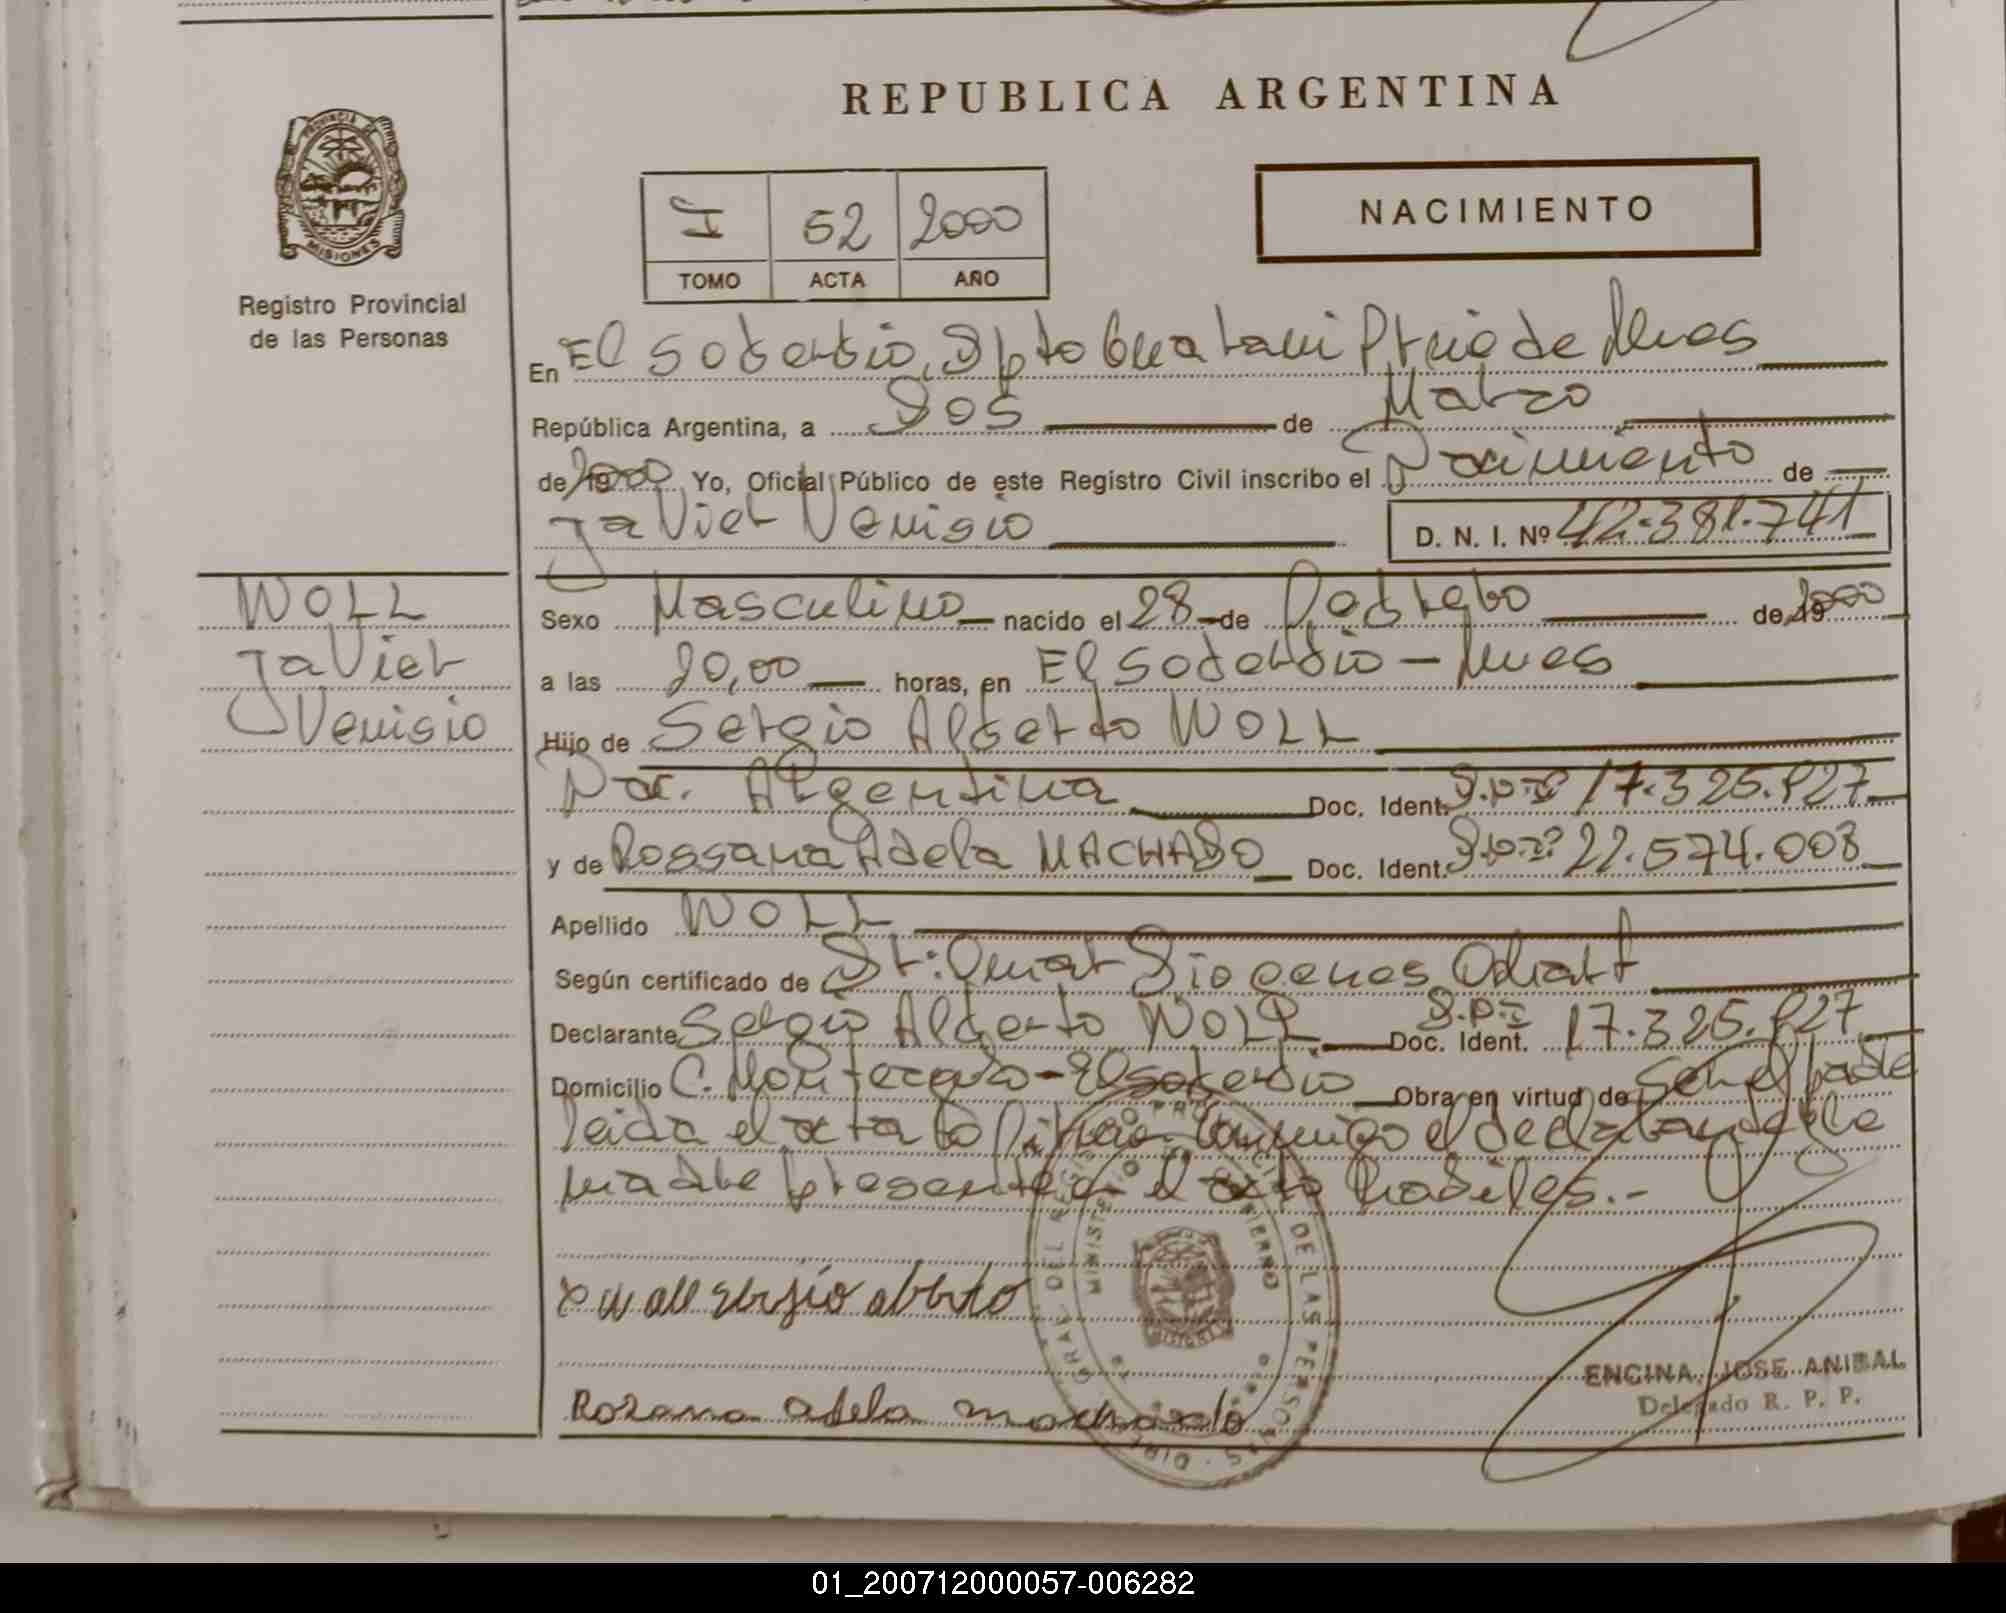 REPUBLICA ARGENTINA
PROVINCIA DE MISIONES
Registro Provincial
de las Personas
I 52 2000
TOMO ACTA AÑO
NACIMIENTO
En El Soberbio, Dpto Guarani Pcia de Mnes
República Argentina, a Dos de Marzo
de 19 2000 Yo, Oficial Público de este Registro Civil inscribo el Nacimiento de
Javier Venisio
D. N. I. Nº 42.381.741
WOLL
Javier
Venisio
Sexo Masculino nacido el 28 de Febrero de 19 2000
a las 20,00 horas, en El Soberbio - Mnes
Hijo de Sergio Alberto WOLL
Nac. Argentina Doc. Ident. D.N.I. 17.325.927
y de Rossana Adela MACHADO Doc. Ident. D.N.I. 22.574.008
Apellido WOLL
Según certificado de Dr: Omar Diogenes
Declarante Sergio Alberto WOLL Doc. Ident. D.N.I. 17.325.927
Domicilio C. Montecarlo - El Soberbio Obra en virtud de Ser el padre
leida el acta la conmigo el declarante y la
madre presente en el acto
x woll serjio alberto
Rozana adela machado
MINISTERIO DE GOBIERNO
DE LAS PERSONAS
ENCINA, JOSE ANIBAL
Delegado R. P. P.
01_200712000057-006282